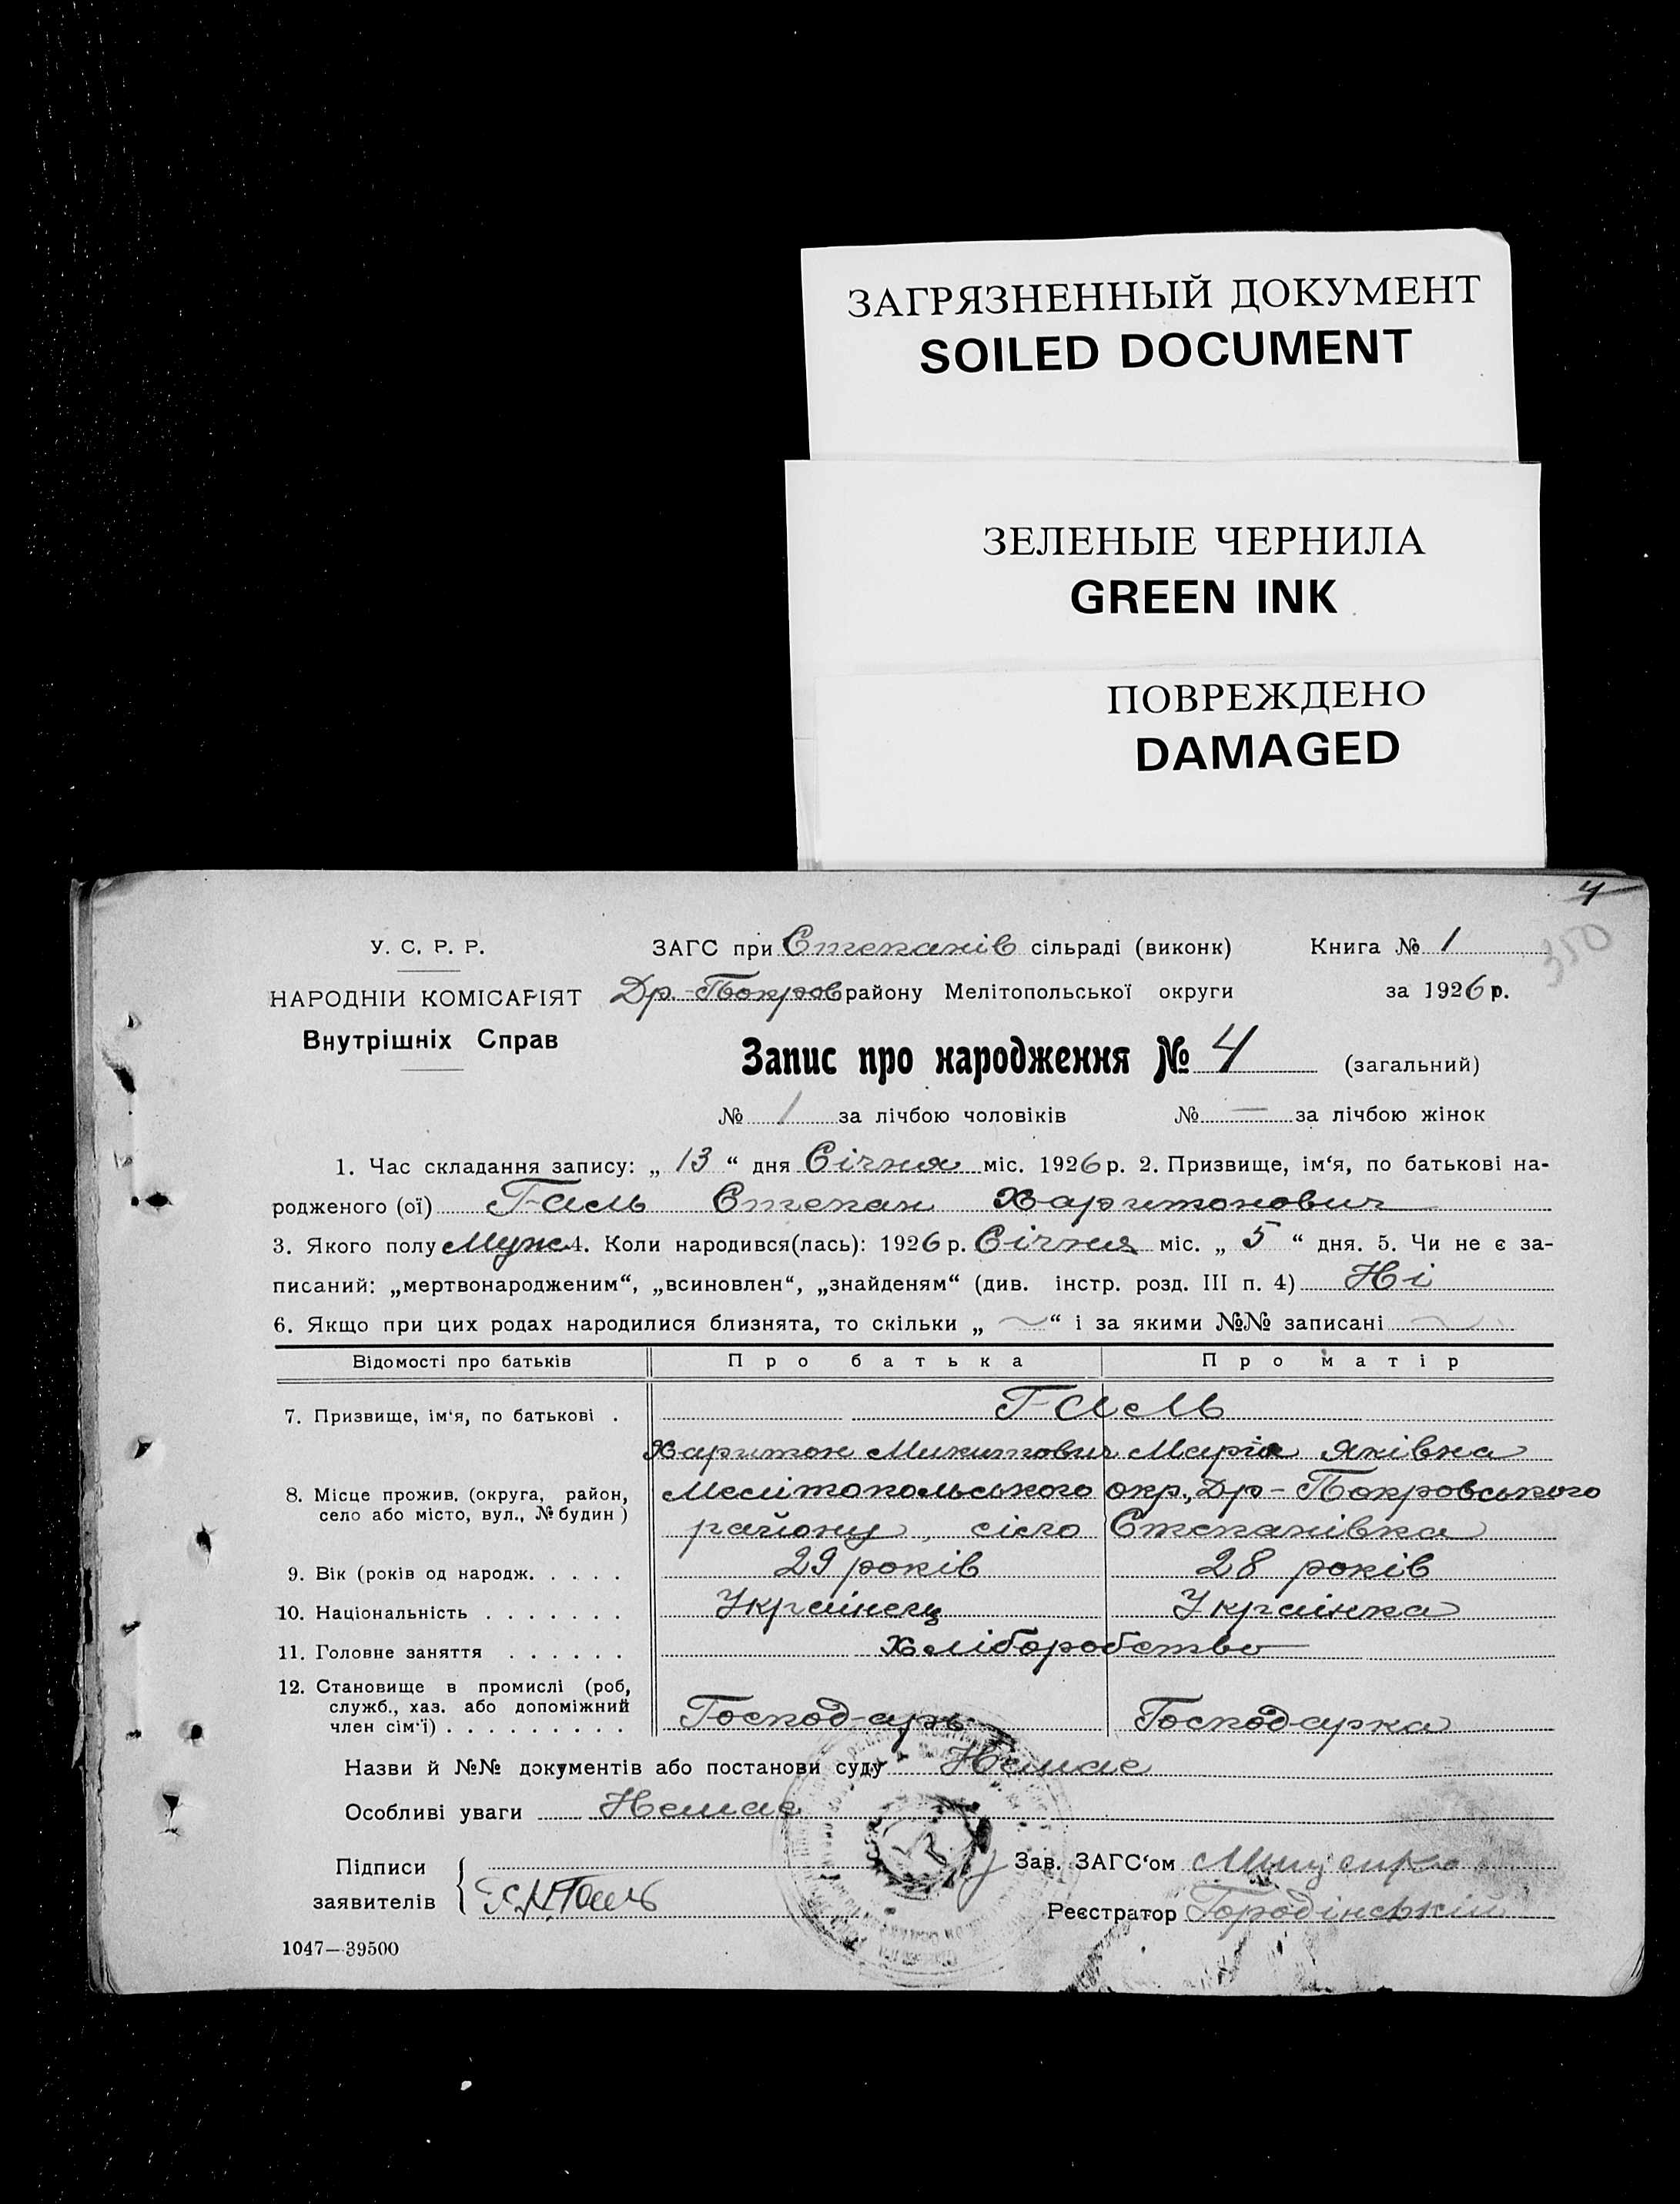 ЗАГРЯЗНЕННЫЙ ДОКУМЕНТ
SOILED DOCUMENT
ЗЕЛЕНЫЕ ЧЕРНИЛА
GREEN INK
ПОВРЕЖДЕНО
DAMAGED
4
350
У. С. Р. Р.
ЗАГС при Степанів сільраді (виконк) Книга № 1
НАРОДНІИ КОМІСАРІЯТ Др.-Покров району Мелітопольської округи за 1926 р.
Внутрішніх Справ
Запис про народження № 4 (загальний)
№ 1 за лічбою чоловіків № — за лічбою жінок
1. Час складання запису: „ 13 “ дня Січня міс. 1926 р. 2. Призвище, ім‘я, по батькові на-
родженого (ої) Галь Степан Харитонович
3. Якого полу Муж 4. Коли народився(лась): 1926 р. Січня міс. „ 5 “ дня. 5. Чи не є за-
писаний: „мертвонародженим“, „всиновлен“, „знайденям“ (див. інстр. розд. III п. 4) Ні
6. Якщо при цих родах народилися близнята, то скільки „ ~ “ і за якими №№ записані ~
Відомості про батьків Про батька Про матір
7. Призвище, ім‘я, по батькові . Галь
Харитон Микитович Марія Яківна
8. Місце прожив. (округа, район, Мелітопольського окр., Др-Покровського
село або місто, вул., № будин) району, село Степанівка
9. Вік (років од народж. . . . . 29 років 28 років
10. Національність . . . . . . . Українець Українка
11. Головне заняття . . . . . . Хліборобство
12. Становище в промислі (роб,
служб., хаз. або допоміжний
член сім‘ї) . . . . . . . . . Господарь Господарка
Назви й №№ документів або постанови суду Немає
Особливі уваги Немає
Підписи Зав. ЗАГС‘ом
заявителів Х.М.Галь Реєстратор Городінський
1047—39500